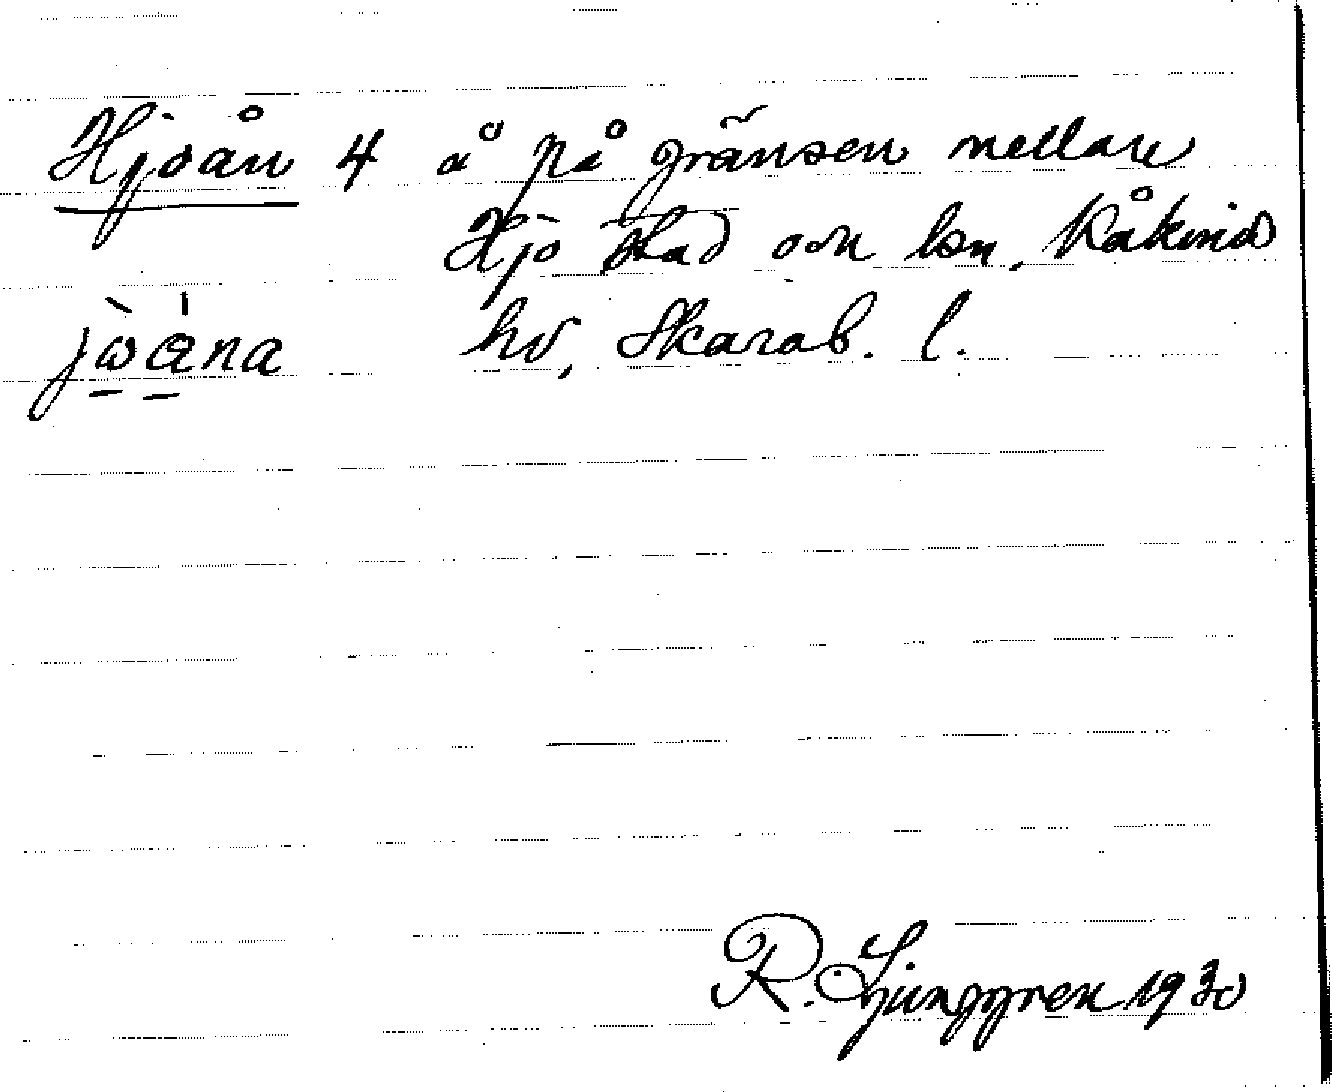 Hjoån 4 å på gränsen mellan
Hjo stad och lsn, Kåkinds
jòána hd, Skarab. l.
R. Ljunggren 1930